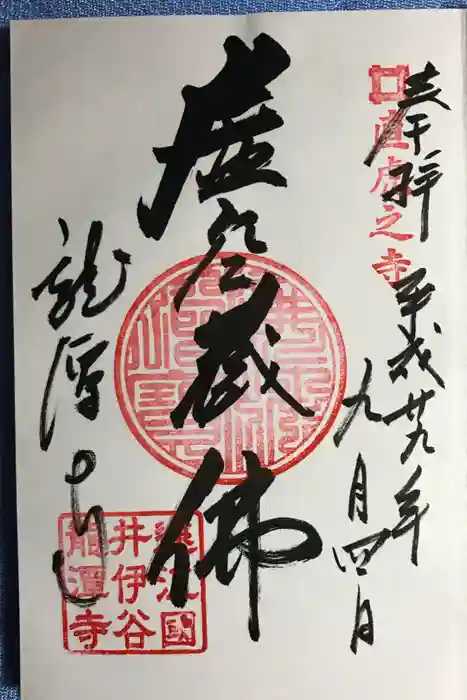 奉拝
直虎之寺
平成廿九年
九月四日
虚空蔵佛
龍潭寺
遠江國
井伊谷
龍潭寺